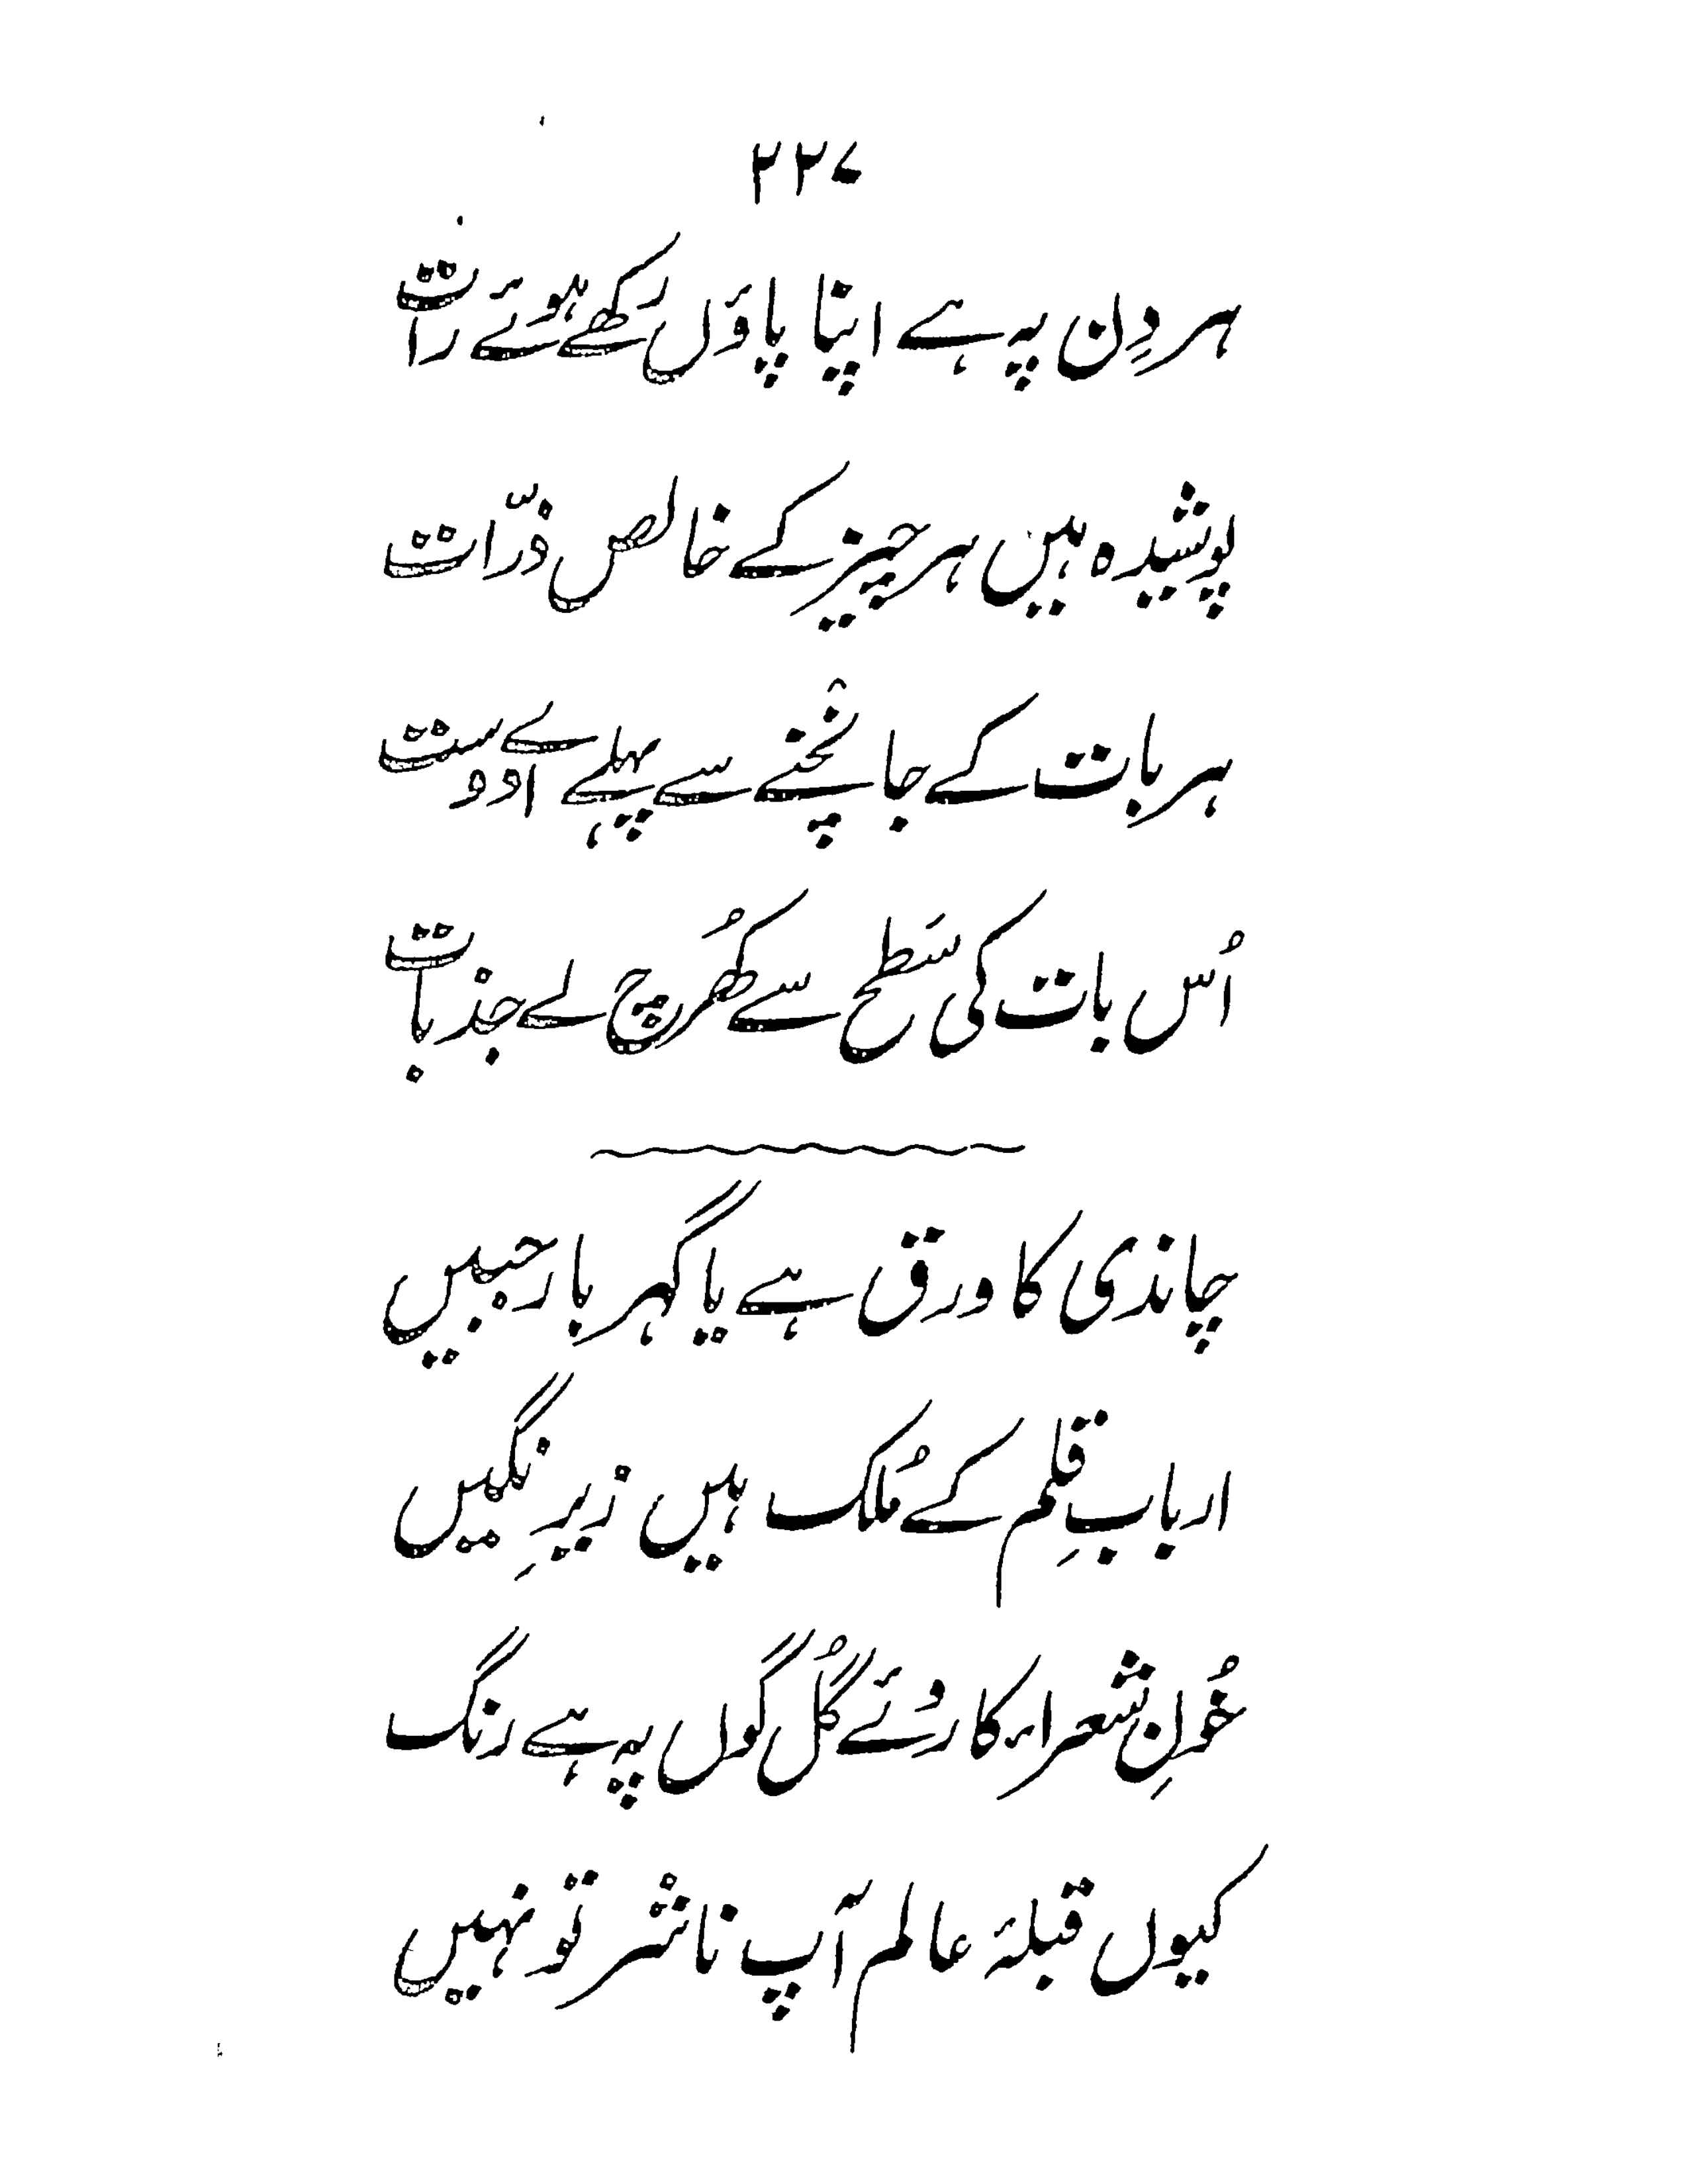 ۲۲۷
ہر دِن پہ ہے اپنا پاؤں رکھے ہوئے رات
پوشیدہ ہیں ہر چیز کے خالص ذرّات
ہر بات کے جانچنے سے پہلے اے دوست
اُس بات کی سَطح سے کُھرَچ لے جذبات
چاندی کا ورق ہے یا گہر بار جبیں
اربابِ قلم کے مُلک ہیں زیرِ نگیں
خُونِ شعراء کا رُوئے گُل گوں پہ ہے رنگ
کیوں قبلۂ عالم آپ ناشر تو نہیں